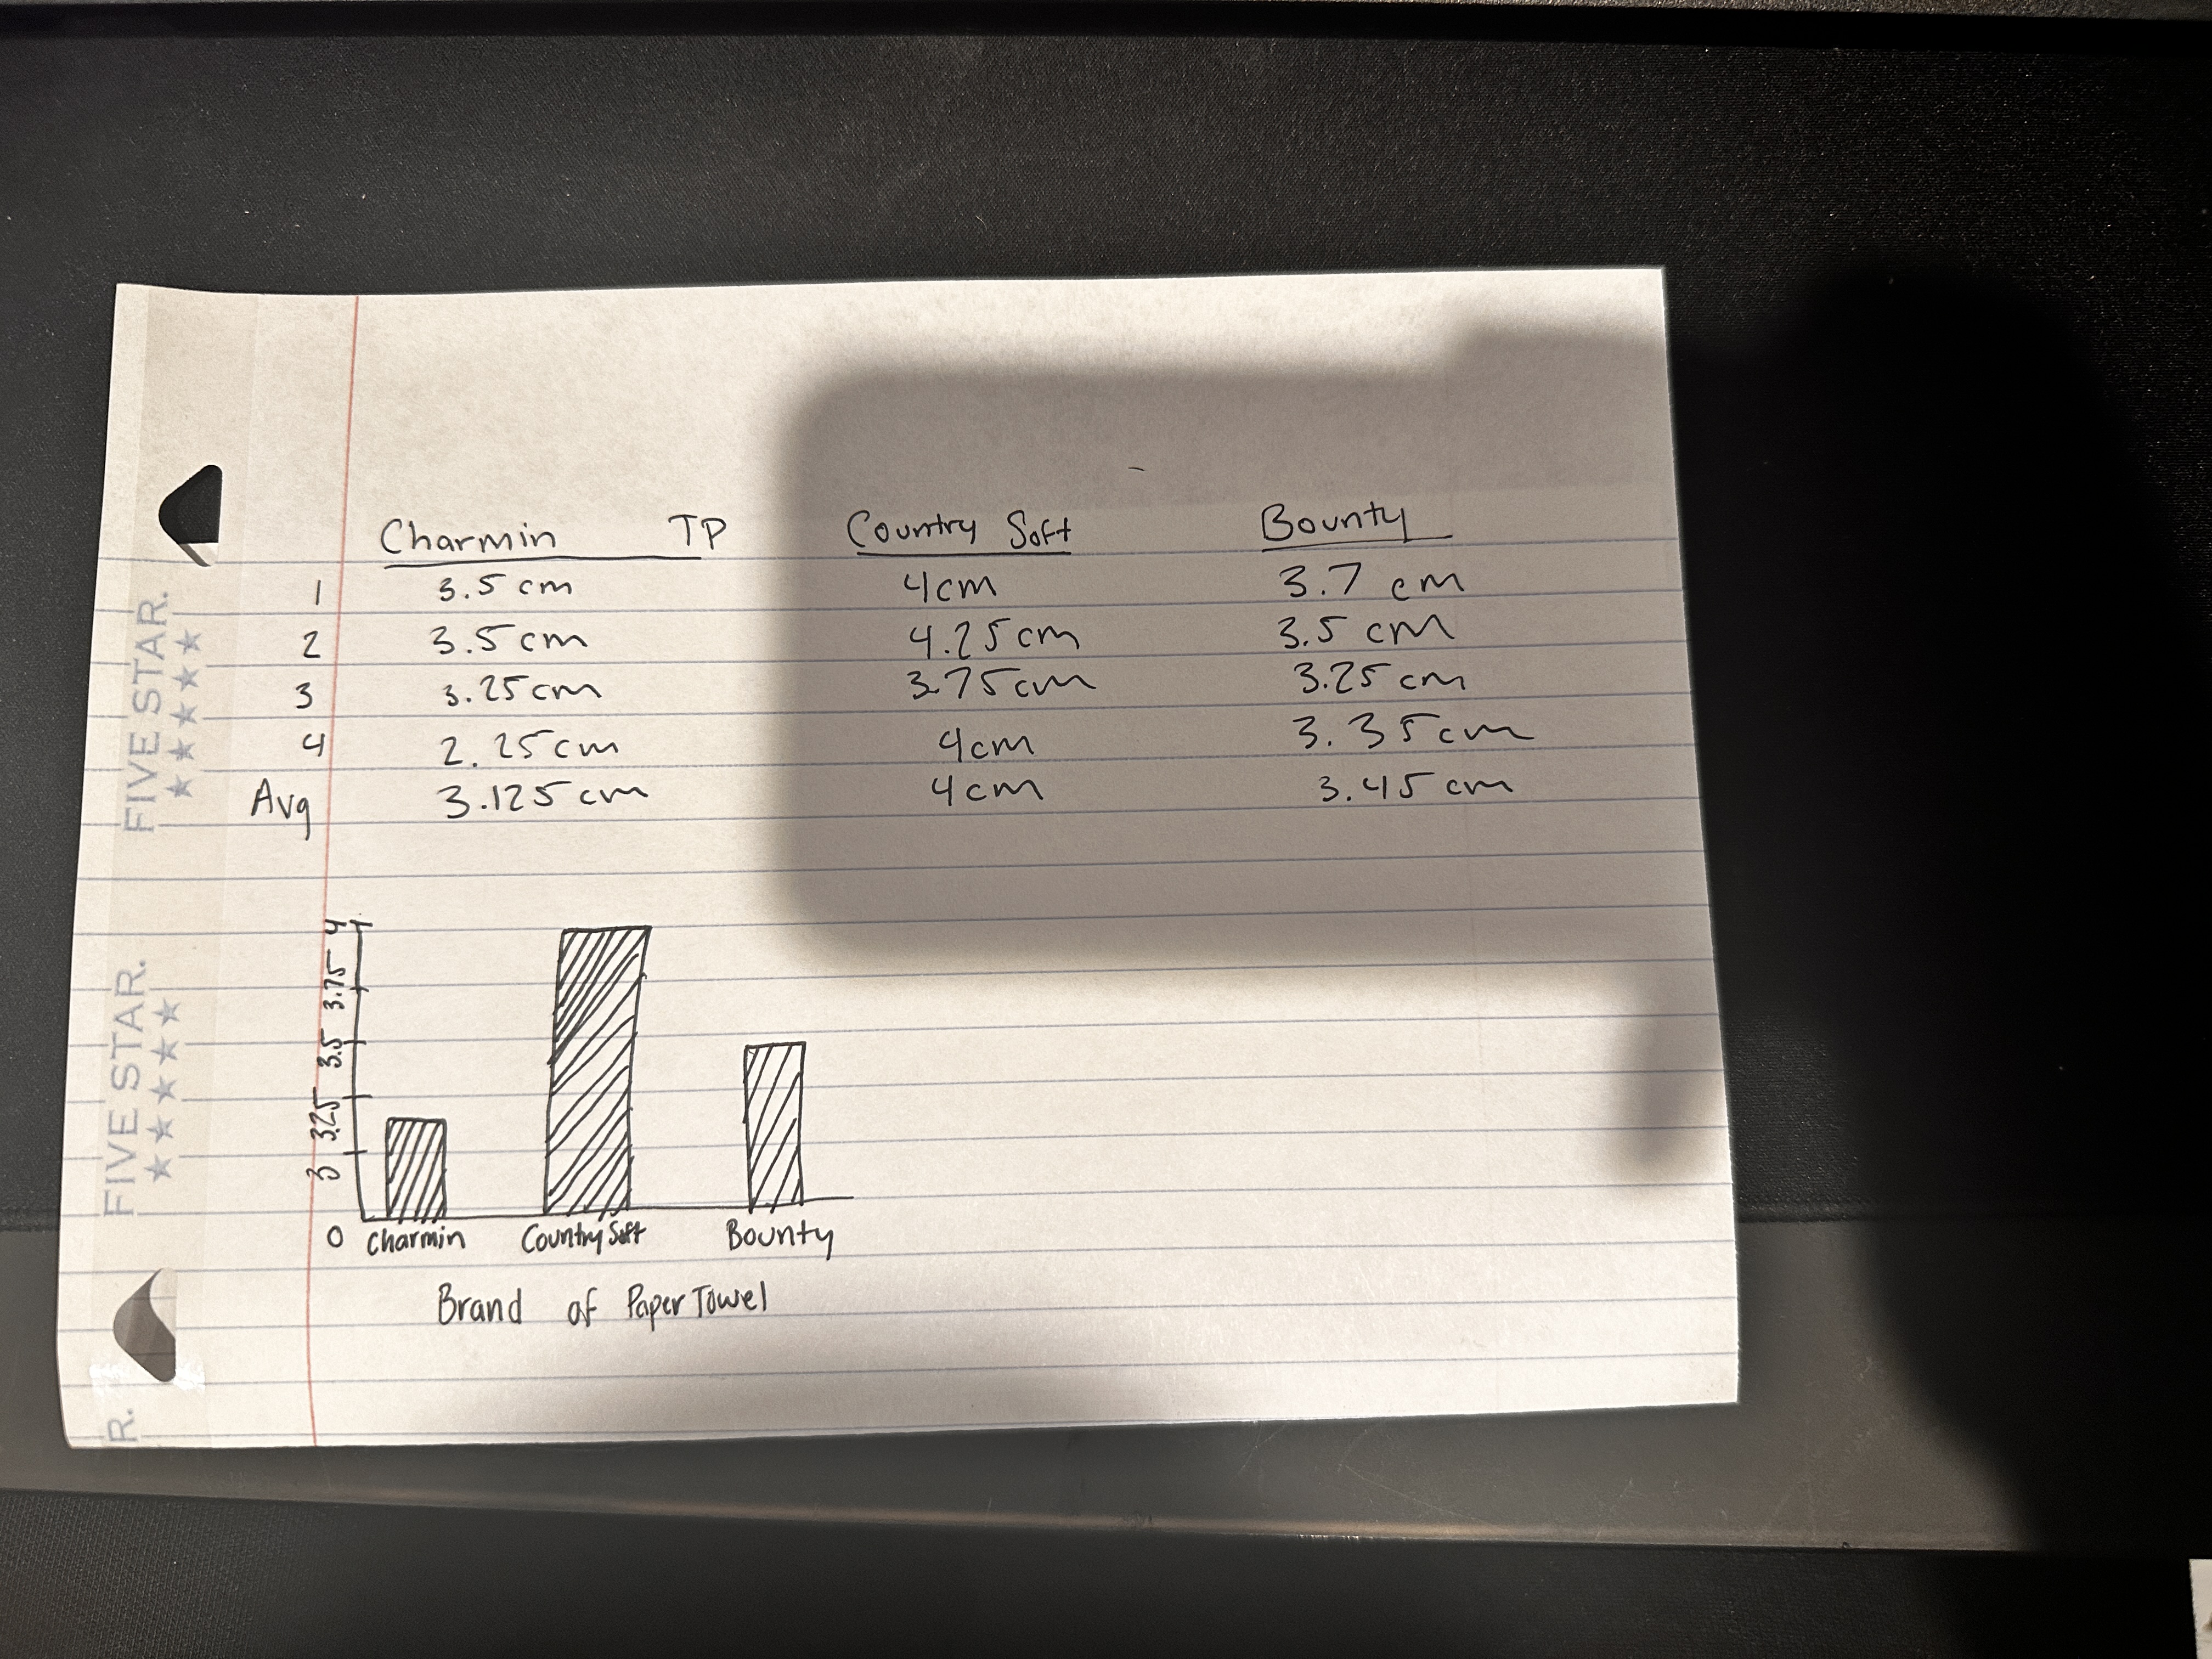 FIVE STAR.
FIVE STAR.
R.
Charmin TP Country Soft Bounty
1 3.5 cm 4cm 3.7 cm
2 3.5 cm 4.25cm 3.5 cm
3 3.25cm 3.75cm 3.25cm
4 2.25cm 4cm 3.35cm
Avg 3.125cm 4cm 3.45cm
4
3.75
3.5
3.25
3
0
Charmin Country Soft Bounty
Brand of Paper Towel